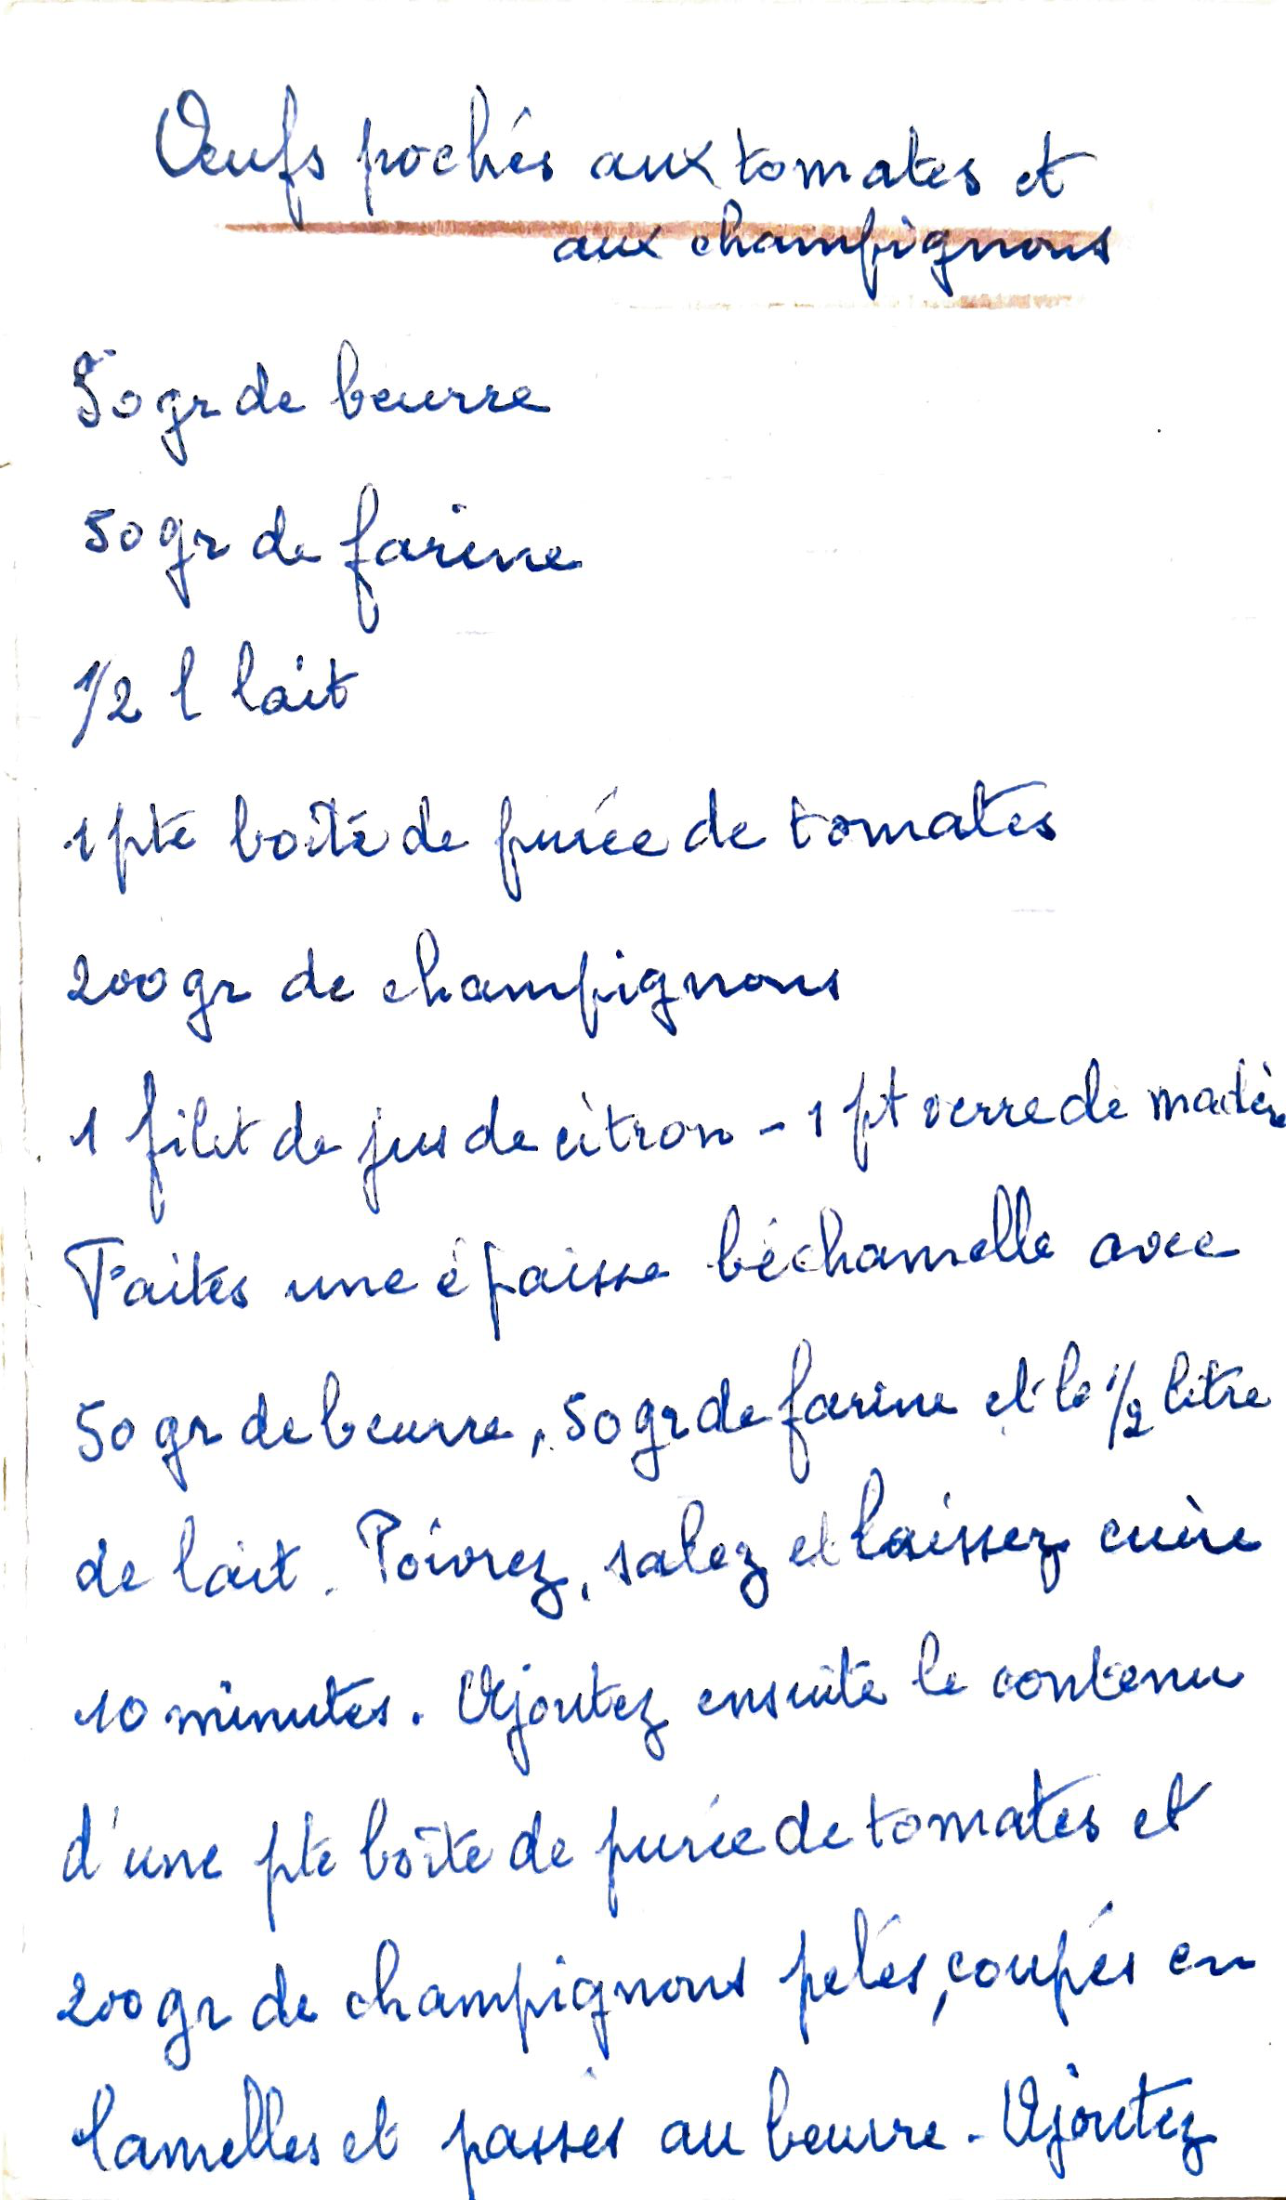 Œufs pochés aux tomates et
aux champignons
50 gr de beurre
50 gr de farine
1/2 l lait
1 pte boîte de purée de tomates
200 gr de champignons
1 filet de jus de citron - 1 pt verre de madère
Faites une épaisse béchamelle avec
50 gr de beurre, 50 gr de farine et le 1/2 litre
de lait. Poivrez, salez et laissez cuire
10 minutes. Ajoutez ensuite le contenu
d'une pte boîte de purée de tomates et
200 gr de champignons pelés, coupés en
lamelles et passés au beurre. Ajoutez